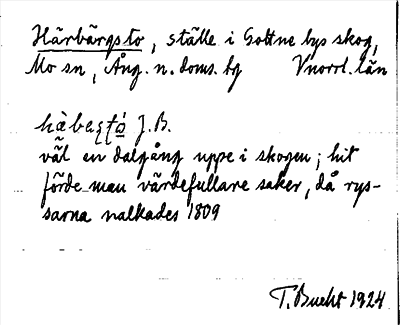 Härbärgsto, ställe i Gottne bys skog,
Mo sn, Ång. n. doms. bg Vnorrl. län
J. B.
väl en dalgång uppe i skogen; hit
förde man värdefullare saker, då rys-
sarna nalkades 1809
T. Bucht 1924